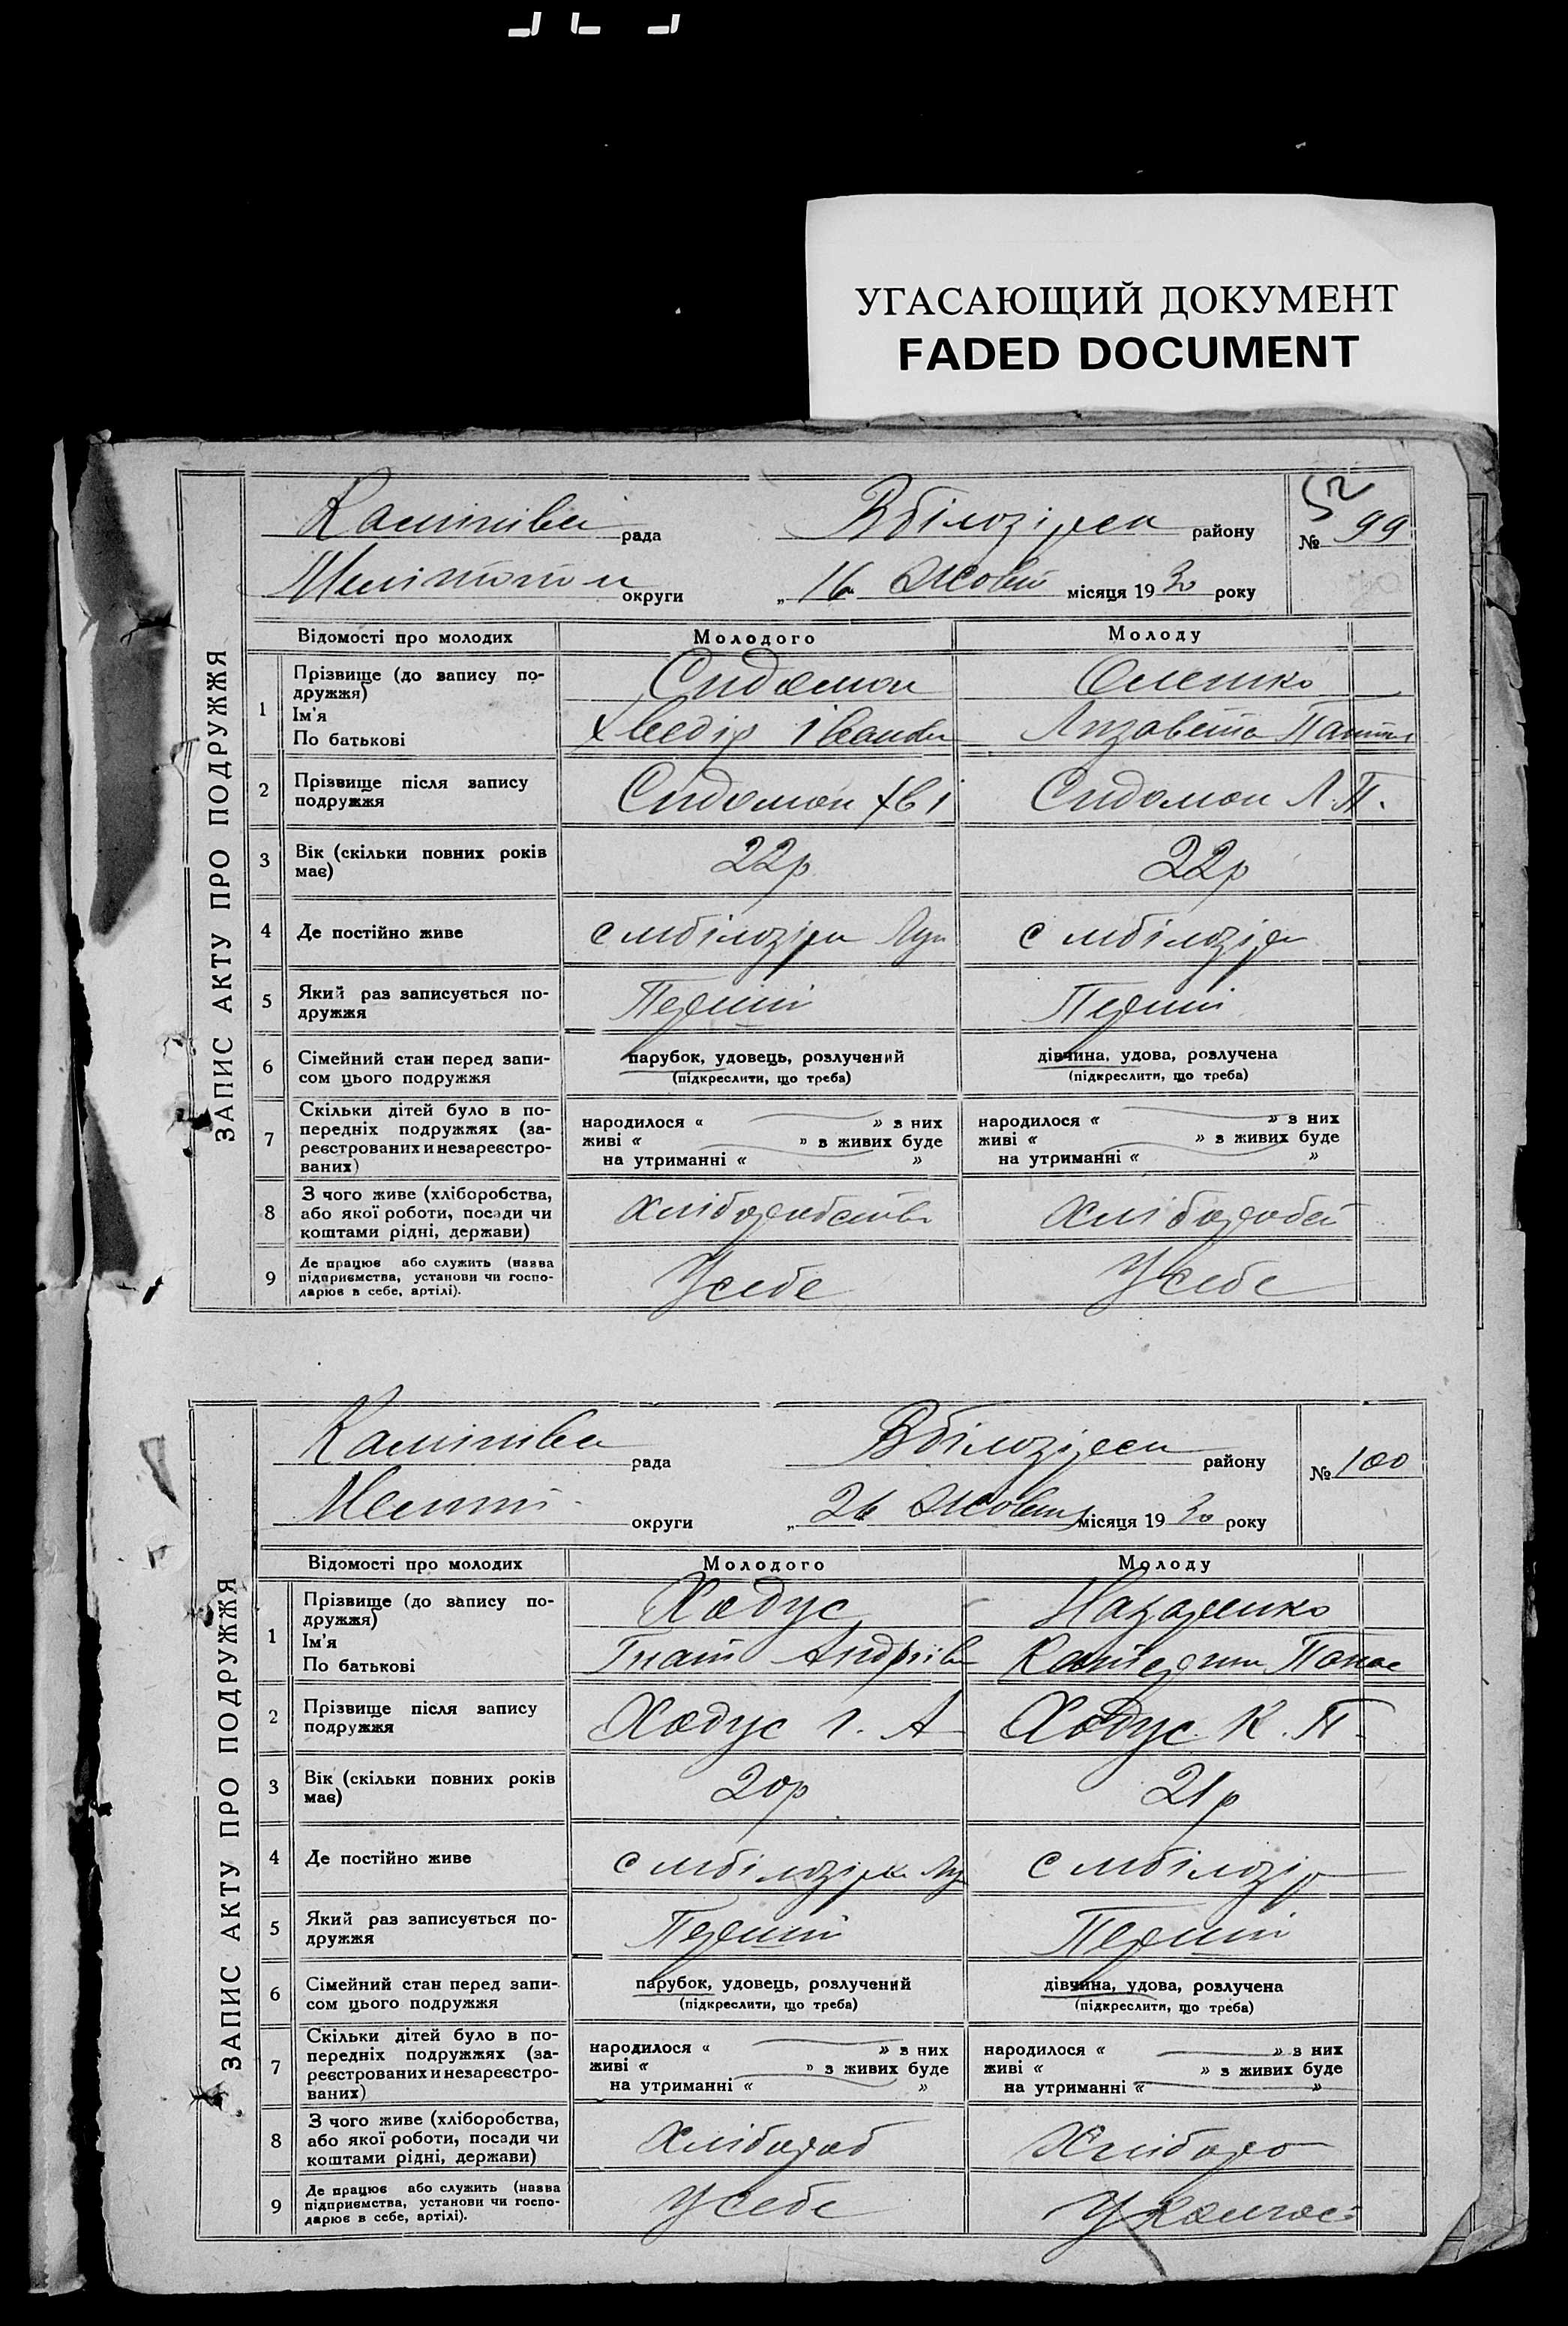 УГАСАЮЩИЙ ДОКУМЕНТ
FADED DOCUMENT
ЗАПИС АКТУ ПРО ПОДРУЖЖЯ
52
рада Вбілозірси району № 99
округи „ 16 Жовт місяця 1930 року
Відомості про молодих Молодого Молоду
1 Прізвище (до запису по-
дружжя)
Ім'я
По батькові
Сидомон Олешко
Хведір Іванов Лизавета
2 Прізвище після запису
подружжя
Сидомон Хв І Сидомон Л. П.
3 Вік (скільки повних років
має)
22р 22р
4 Де постійно живе
с мбілозірк с мбілозір
5 Який раз записується по-
дружжя
Перший Перший
6 Сімейний стан перед запи-
сом цього подружжя
парубок, удовець, розлучений дівчина, удова, розлучена
(підкреслити, що треба) (підкреслити, що треба)
7 Скільки дітей було в по-
передніх подружжях (за-
реєстрованих и незареєстро-
ваних)
народилося « » з них народилося « » з них
живі « » з живих буде живі « » з живих буде
на утриманні « » на утриманні « »
8 З чого живе (хліборобства,
або якої роботи, посади чи
коштами рідні, держави)
Хліборобств Хліборобст
9 Де працює або служить (назва
підприємства, установи чи госпо-
дарює в себе, артілі).
У себе У себе
ЗАПИС АКТУ ПРО ПОДРУЖЖЯ
рада Вбілозірси району № 100
округи „ 26 Жовтн місяця 1930 року
Відомості про молодих Молодого Молоду
1 Прізвище (до запису по-
дружжя)
Ім'я
По батькові
Ходус Назаренко
Гнат Андріїв Катерина Панас
2 Прізвище після запису
подружжя
Ходус Г. А Ходус К. П.
3 Вік (скільки повних років
має)
20р 21р
4 Де постійно живе
с мбілозірк с мбілозір
5 Який раз записується по-
дружжя
Перший Перший
6 Сімейний стан перед запи-
сом цього подружжя
парубок, удовець, розлучений дівчина, удова, розлучена
(підкреслити, що треба) (підкреслити, що треба)
7 Скільки дітей було в по-
передніх подружжях (за-
реєстрованих и незареєстро-
ваних)
народилося « » з них народилося « » з них
живі « » з живих буде живі « » з живих буде
на утриманні « » на утриманні « »
8 З чого живе (хліборобства,
або якої роботи, посади чи
коштами рідні, держави)
Хлібороб Хліборо
9 Де працює або служить (назва
підприємства, установи чи госпо-
дарює в себе, артілі).
У себе У